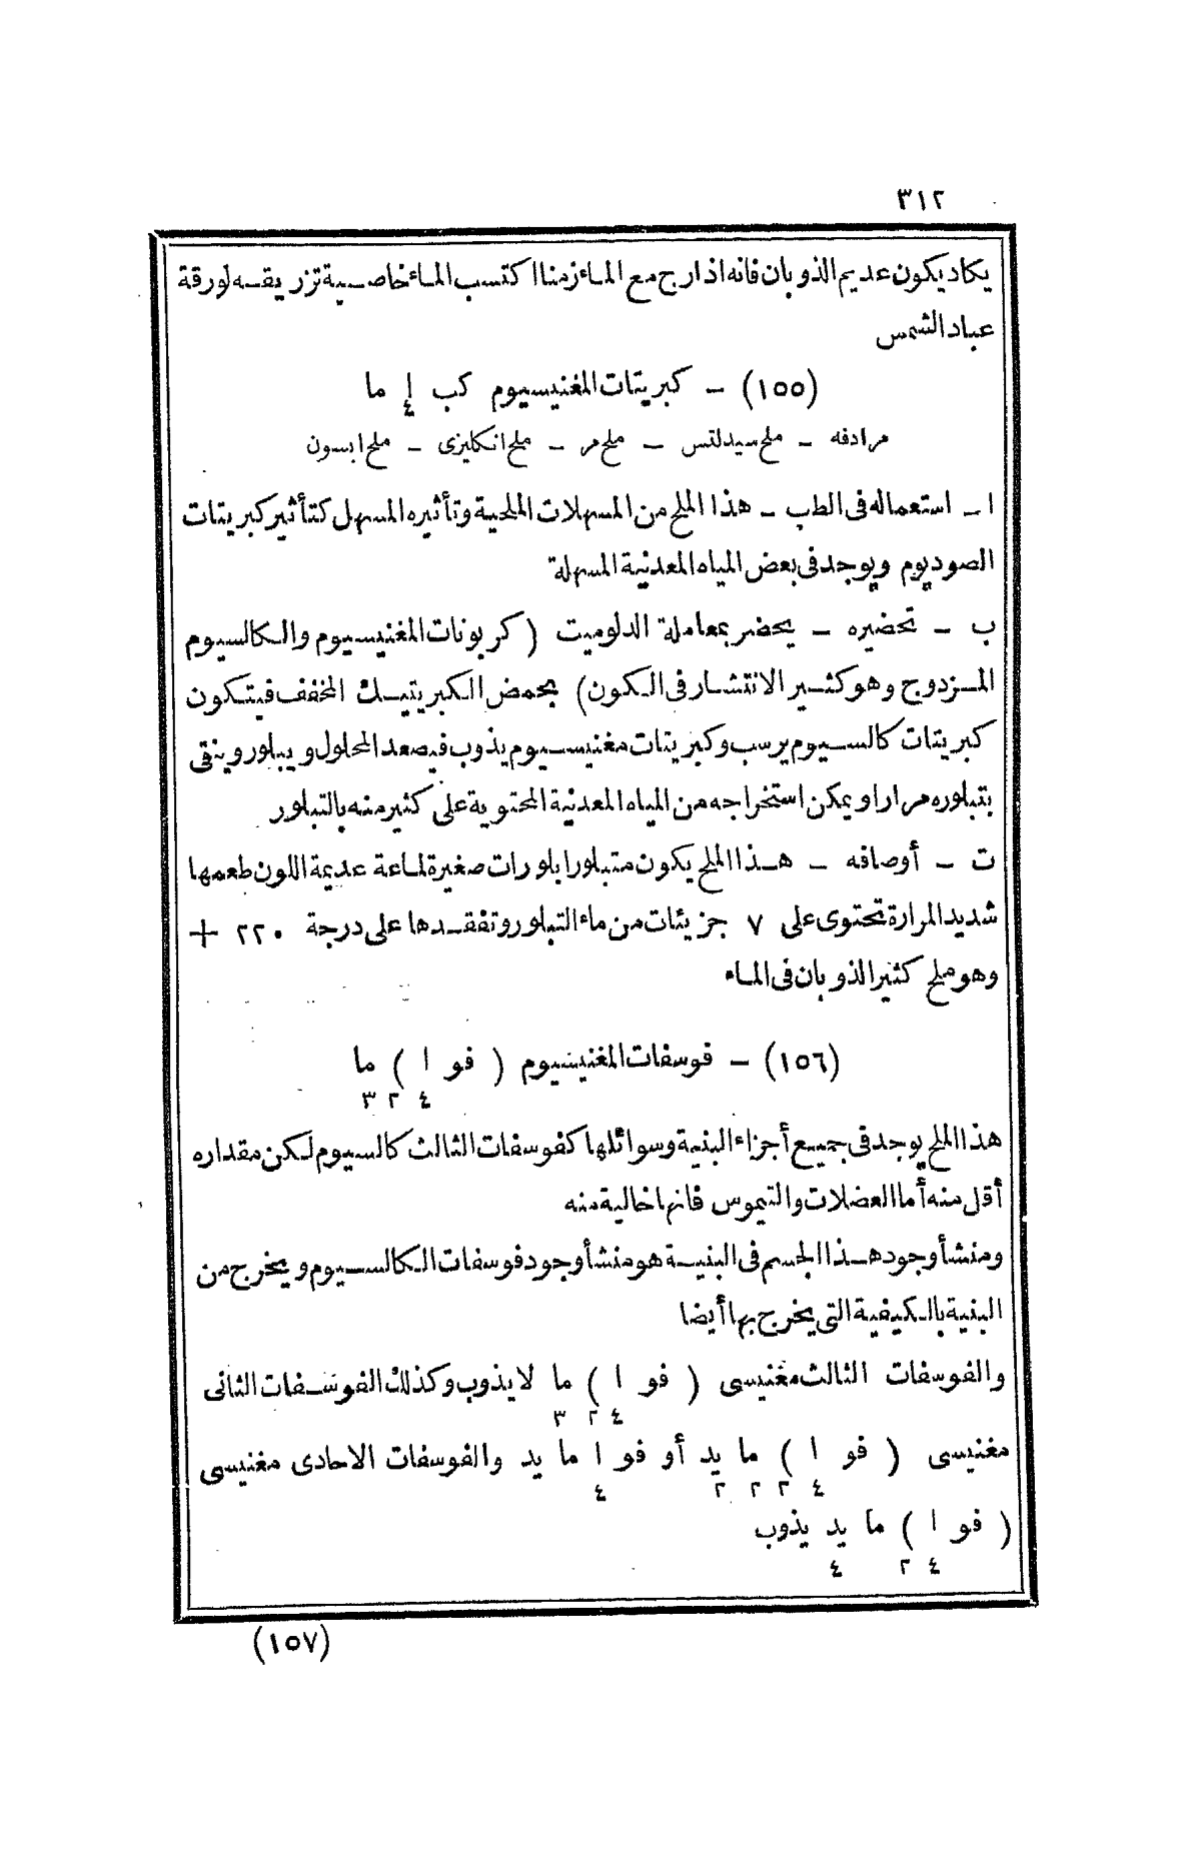 ٣١٢
يكاد يكون عديم الذوبان فانه اذا رج مع الماء زمنا اكتسب الماء خاصية تزريقه لورقة
عباد الشمس
(١٥٥) – كبريتات المغنيسيوم كب ا ما
٤
مرادفه – ملح سيدلتس – ملح مر – ملح انكليزى – ملح ابسون
ا – استعماله فى الطب – هذا الملح من المسهلات الملحية وتأثيره المسهل كتأثير كبريتات
الصوديوم ويوجد فى بعض المياه المعدنية المسهلة
ب – تحضيره – يحضر بمعاملة الدلوميت (كربونات المغنيسيوم والكالسيوم
المزدوج وهو كثير الانتشار فى الكون) بحمض الكبريتيك المخفف فيتكون
كبريتات كالسيوم يرسب وكبريتات مغنيسيوم يذوب فيصعد المحلول ويبلور وينقى
بتبلوره مرارا ويمكن استخراجه من المياه المعدنية المحتوية على كثير منه بالتبلور
ت – أوصافه – هذا الملح يكون متبلورا بلورات صغيرة لماعة عديمة اللون طعمها
شديد المرارة تحتوى على ٧ جزيئات من ماء التبلور وتفقدها على درجة ٢٢٠ +
وهو ملح كثير الذوبان فى الماء
(١٥٦) – فوسفات المغنيسيوم ( فو ا ) ما
٤ ٢ ٣
هذا الملح يوجد فى جميع أجزاء البنية وسوائلها كفوسفات الثالث كالسيوم لكن مقداره
أقل منه أما العضلات والتيموس فانها خالية منه
ومنشأ وجود هذا الجسم فى البنية هو منشأ وجود فوسفات الكالسيوم ويخرج من
البنية بالكيفية التى يخرج بها أيضا
والفوسفات الثالث مغنيسى ( فو ا ) ما لا يذوب وكذلك الفوسفات الثانى
٤ ٢ ٣
مغنيسى ( فو ا ) ما يد أو فو ا ما يد والفوسفات الاحادى مغنيسى
٤ ٢ ٢ ٢ ٤
( فو ا ) ما يد يذوب
٤ ٢ ٤
(١٥٧)